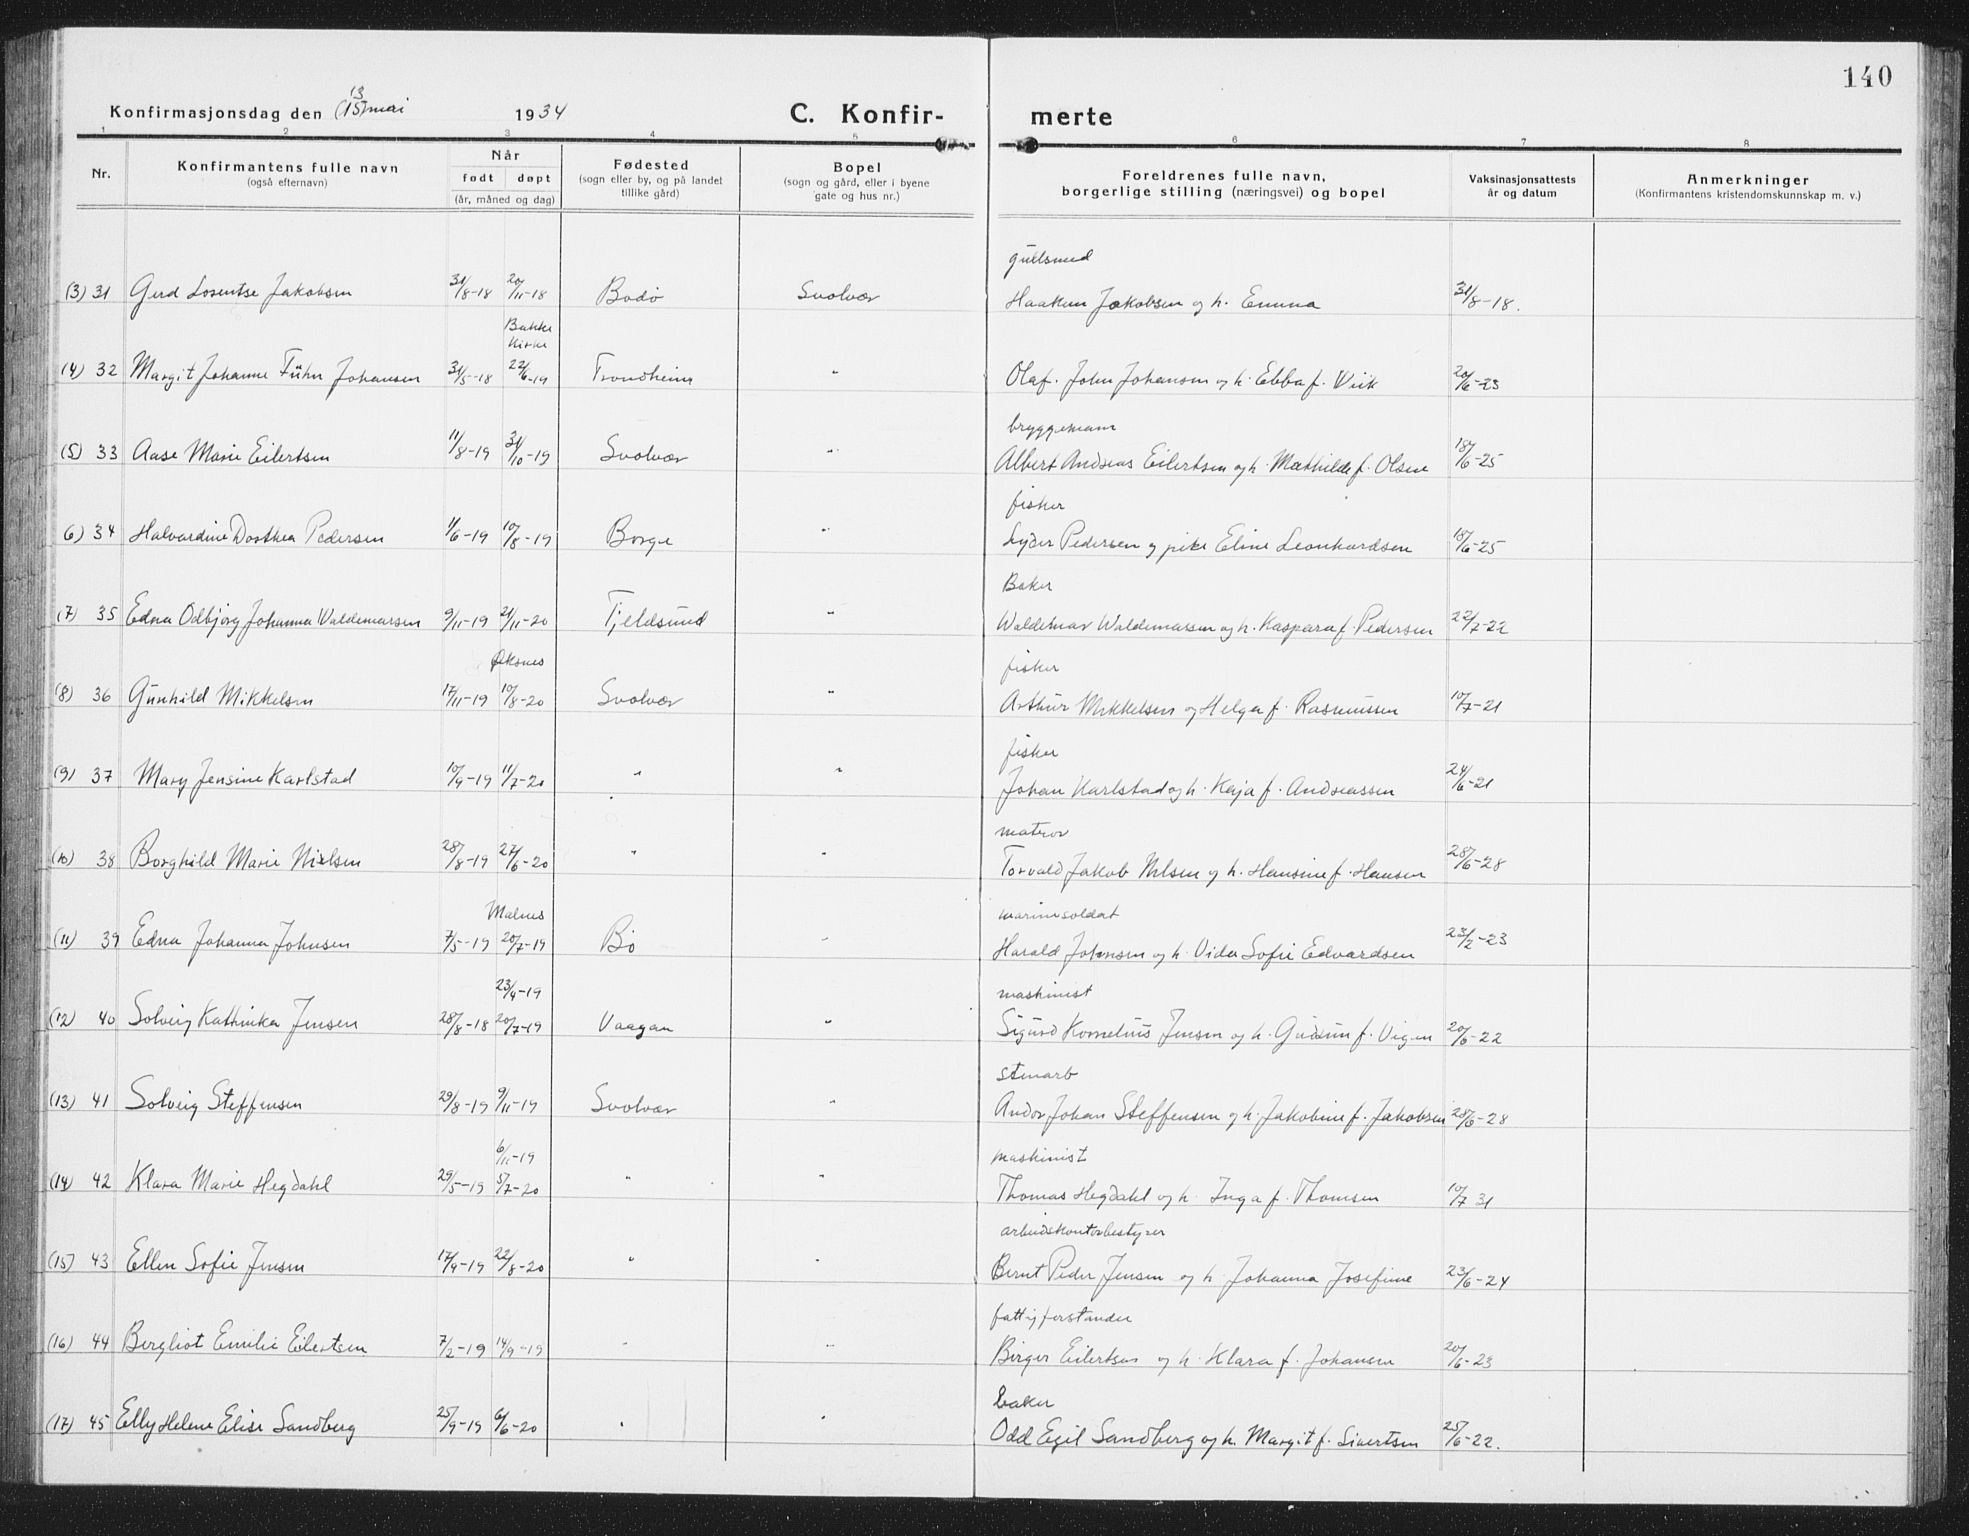 140
Konfirmasjonsdag den 13 (15) mai 1934 C. Konfir- merte
1 2 3 4 5 6 7 8
Nr. Konfirmantens fulle navn (også efternavn) Når født døpt (år, måned og dag) Fødested (sogn eller by, og på landet tillike gård) Bopel (sogn og gård, eller i byene gate og hus nr.) Foreldrenes fulle navn, borgerlige stilling (næringsvei) og bopel Vaksinasjonsattests år og datum Anmerkninger (Konfirmantens kristendomskunnskap m. v.)
gullsmed
(3) 31 Gerd Losentse Jakobsen 31/8-18 20/11-18 Bodø Svolvær Haakon Jakobsen og h. Emma 31/8-18.
Bakke Kirke
(4) 32 Margit Johanne Führ Johansen 31/5-18 22/6-19 Trondheim " Olaf John Johansen og h. Ebba f. Wiik 20/6-23
bryggemann
(5) 33 Aase Marie Eilertsen 11/8-19 31/10-19 Svolvær " Albert Andreas Eilertsen og h. Mathilde f. Olsen 18/6-25
fisker
(6) 34 Halvardine Dorthea Pedersen 1/6-19 10/8-19 Borge " Lyder Pedersen og pike Eline Leonhardsen 18/6-25
Baker
(7) 35 Edna Odbjørg Johanna Waldemarsen 9/11-19 21/11-20 Tjeldsund " Waldemar Waldemarsen og h. Kaspara f. Pedersen 22/7-22
Øksnes fisker
(8) 36 Gunhild Mikkelsen 17/11-19 10/8-20 Svolvær " Arthur Mikkelsen og Helga f. Rasmussen 10/7-21
fisker
(9) 37 Mary Jensine Karlstad 10/9-19 11/7-20 " " Johan Karlstad og h. Kaja f. Andreassen 24/6-21
matros
(10) 38 Borghild Marie Nielsen 28/8-19 27/6-20 " " Torvald Jakob Nilsen og h. Hansine f. Hansen 28/6-28
Malnes marinesoldat
(11) 39 Edna Johanna Johnsen 7/5-19 20/7-19 Bø " Harald Johnsen og h. Vida Sofie Edvardsen 23/2-23
23/4-19 maskinist
(12) 40 Solveig Kathinka Jensen 28/8-18 20/7-19 Vaagan " Sigurd Kornelius Jensen og h. Gudrun f. Vigen 20/6-22
stenarb
(13) 41 Solveig Steffensen 29/8-19 9/11-19 Svolvær " Andor Johan Steffensen og h. Jakobine f. Jakobsen 28/6-28
6/11-19 maskinist
(14) 42 Klara Marie Hegdahl 29/5-19 5/7-20 " " Thomas Hegdahl og h. Inga f. Thomsen 10/7 31
arbeidskontorbestyrer
(15) 43 Ellen Sofie Jensen 17/9-19 22/8-20 " " Bernt Peder Jensen og h. Johanna Josefine 23/6-24
fattigforstander
(16) 44 Bergliot Emilie Eilertsen 7/2-19 14/9-19 " " Birger Eilertsen og h. Klara f. Johansen 20/6-23
baker
(17) 45 Elly Helene Elise Sandberg 25/9-19 6/6-20 " " Odd Egil Sandberg og h. Margit f. Sivertsen 25/6-22.